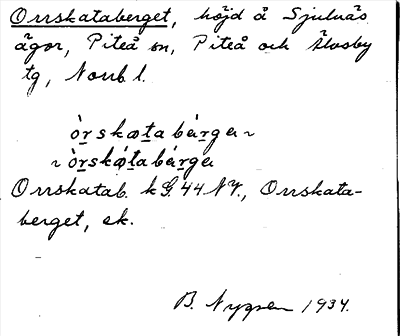 Orrskataberget, höjd å Sjulnäs
ägor, Piteå sn, Piteå och Älvsby
tg, Norrb. l.
òrskata bærge ~
~ òrskátabærge
Orrskatab. kG. 44 NV., Orrskata-
berget, ek.
B. Nygren 1934.